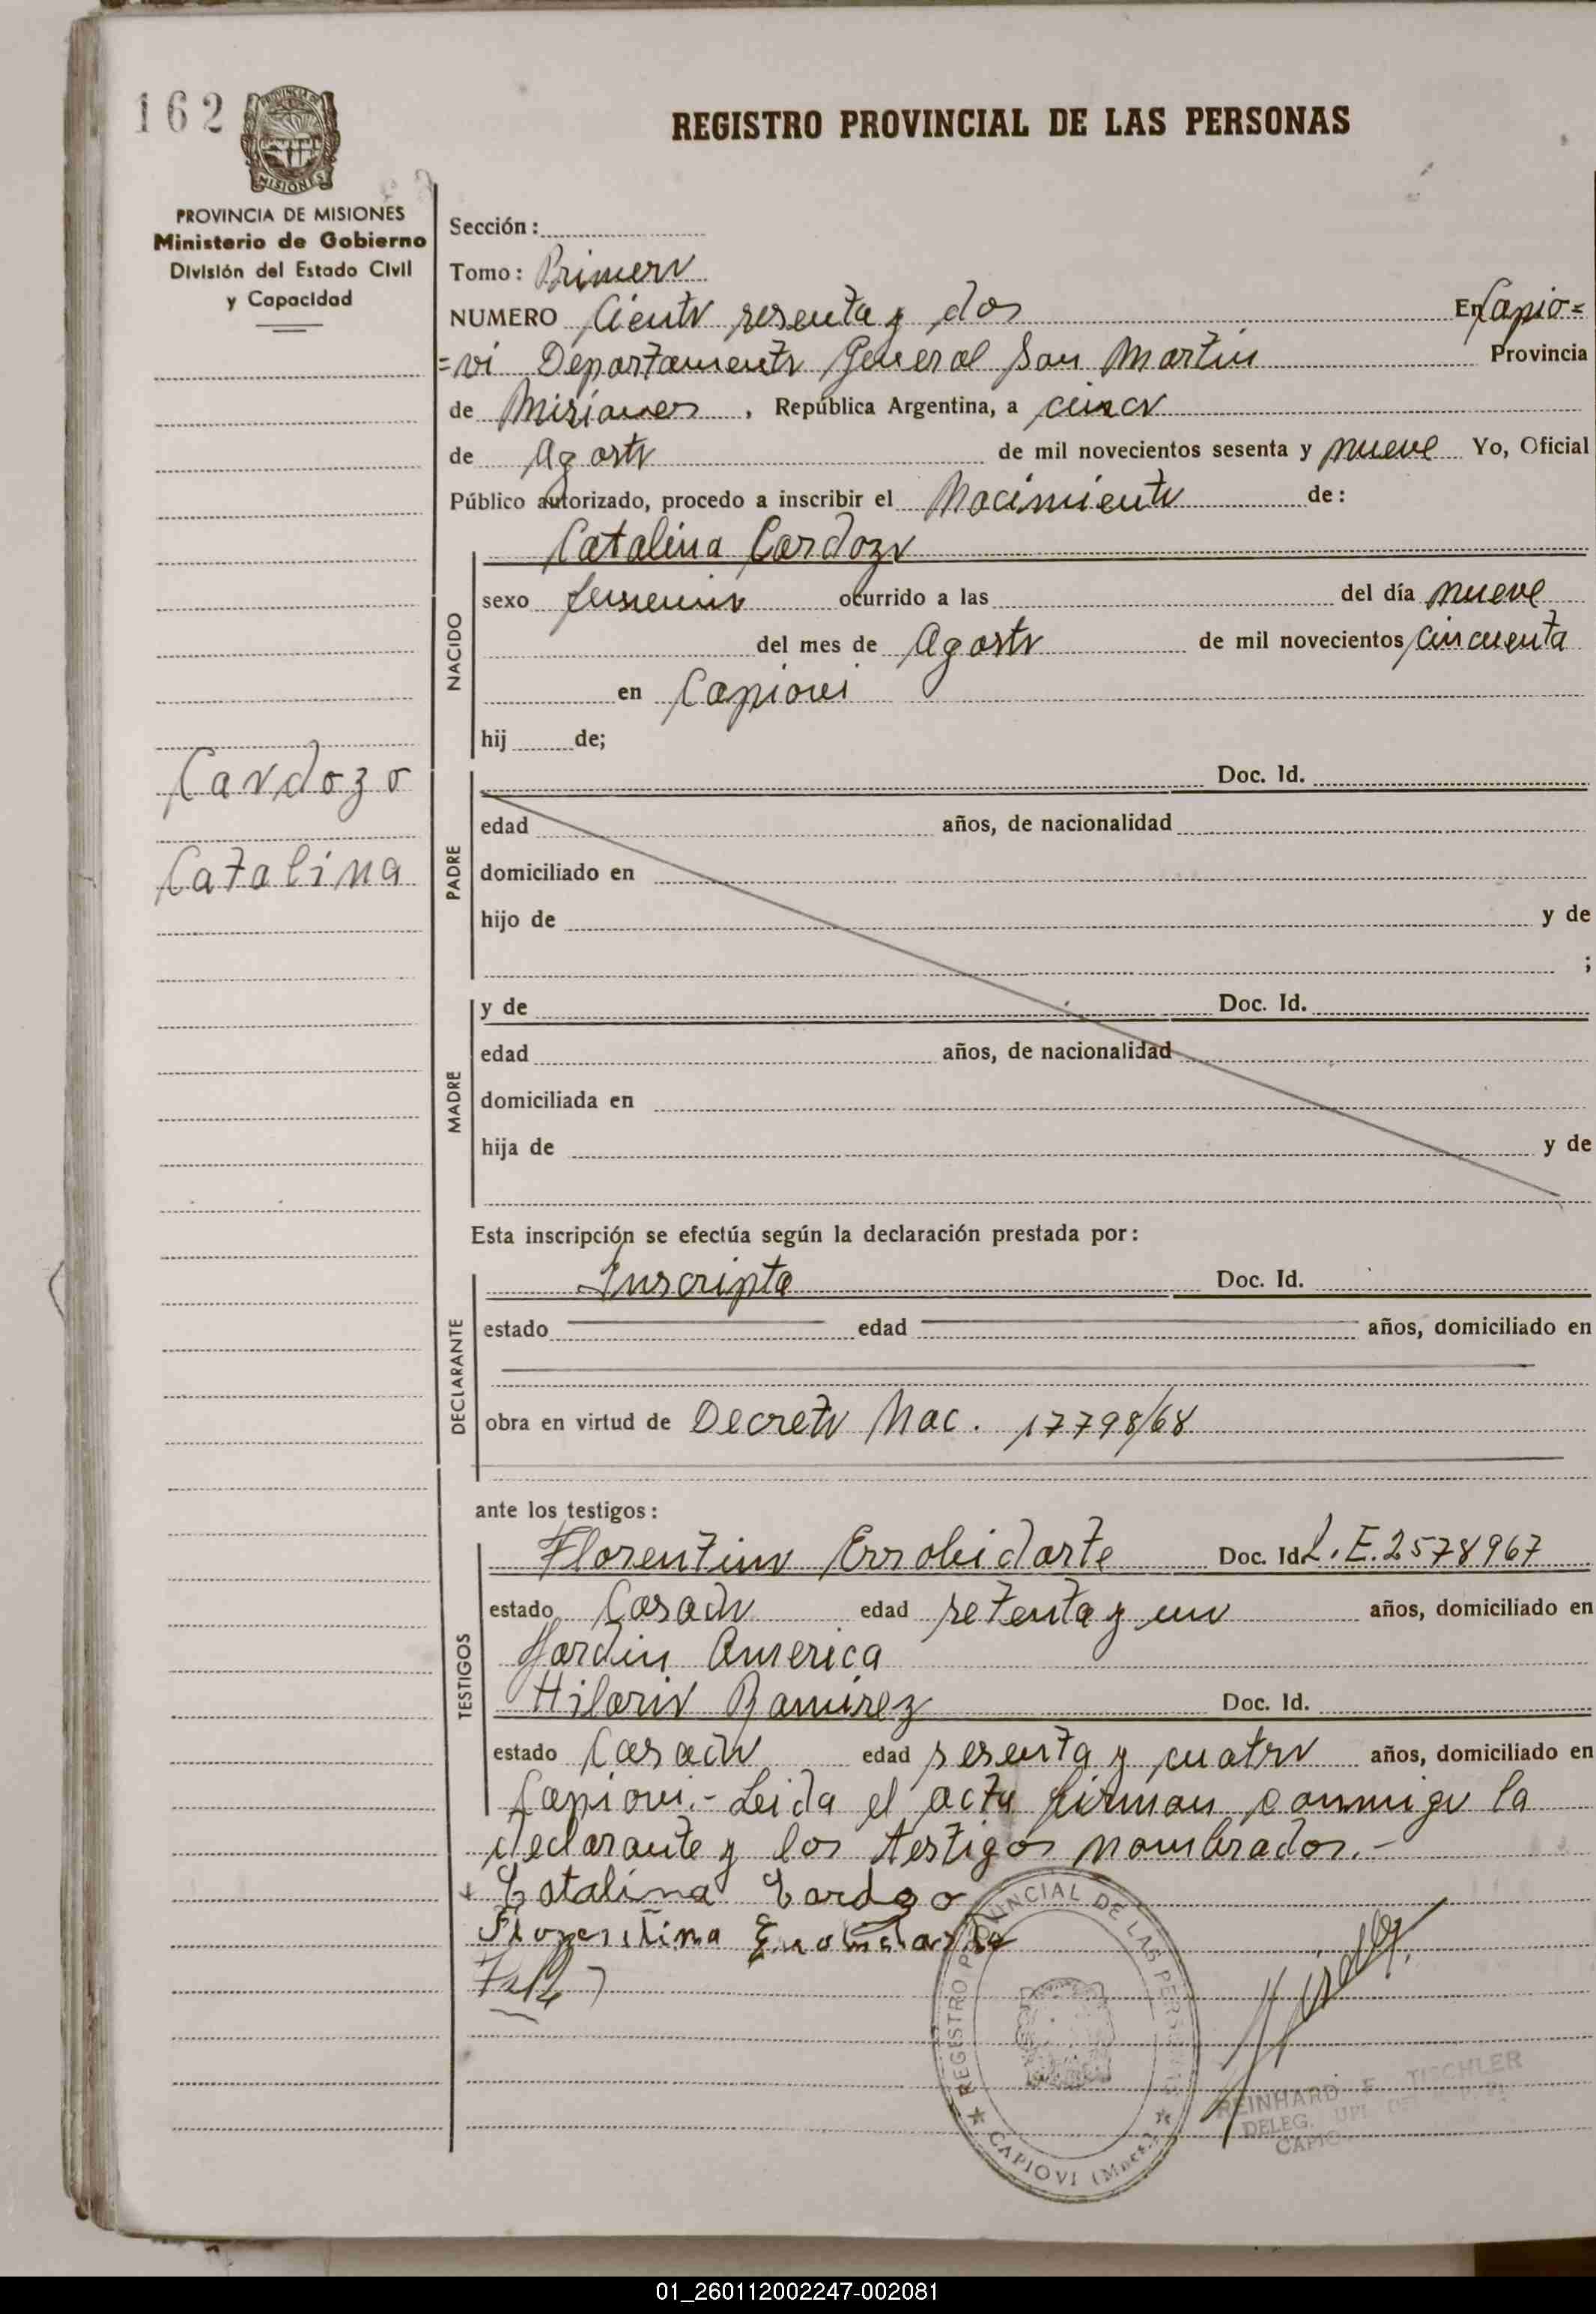 162
PROVINCIA DE MISIONES
REGISTRO PROVINCIAL DE LAS PERSONAS
PROVINCIA DE MISIONES
Ministerio de Gobierno
División del Estado Civil
y Capacidad
Cardozo
Catalina
Sección:
Tomo: Primero
NUMERO Ciento sesenta y dos En Capio=
=vi Departamento General San Martin Provincia
de Misiones, República Argentina, a cinco
de Agosto de mil novecientos sesenta y nueve Yo, Oficial
Público autorizado, procedo a inscribir el Nacimiento de:
NACIDO
Catalina Cardozo
sexo femenino ocurrido a las del día nueve
del mes de Agosto de mil novecientos cincuenta
en Capiovi
hij de;
PADRE
Doc. Id.
edad años, de nacionalidad
domiciliado en
hijo de y de
;
MADRE
y de Doc. Id.
edad años, de nacionalidad
domiciliada en
hija de y de
Esta inscripción se efectúa según la declaración prestada por:
DECLARANTE
Inscripta Doc. Id.
estado edad años, domiciliado en
obra en virtud de Decreto Nac. 17798/68
ante los testigos:
TESTIGOS
Florentino Errobidarte Doc. Id. L.E. 2578967
estado Casado edad setenta y un años, domiciliado en
Jardin America
Hilario Ramirez Doc. Id.
estado Casado edad sesenta y cuatro años, domiciliado en
Capiovi.- Leida el acta firman conmigo la
declarante y los testigos nombrados.-
Catalina Cardozo
Florentino Errobidarte
REGISTRO PROVINCIAL DE LAS PERSONAS
CAPIOVI (Mnes.)
REINHARD F. TISCHLER
DELEG.
01_260112002247-002081